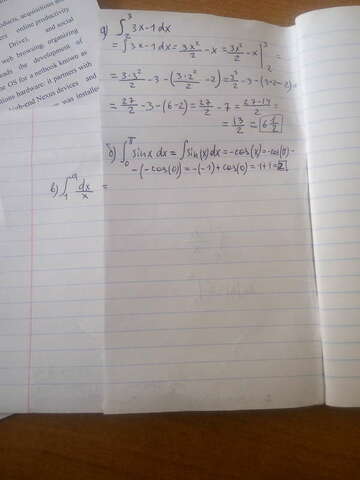 products, acquisitions and
online productivity
Drive), and social
web browsing, organizing
leads the development of
OS for a netbook known as
hardware: it partners with
high-end Nexus devices and
was installed
а) ∫₂³ 3x-1 dx
= ∫3x-1 dx = 3x²/2 - x = 3x²/2 - x |₂³ =
= 3·3²/2 - 3 - (3·2²/2 - 2) = 3³/2 - 3 - (3·2-2) =
= 27/2 - 3 - (6-2) = 27/2 - 7 = 27-14/2 =
= 13/2 = 6 1/2
б) ∫₀ sin x dx = ∫sin(x) dx = -cos(x) = -cos(0) -
-(-cos(0)) = -(-1) + cos(0) = 1+1 = 2
в) ∫₁ dx/x =